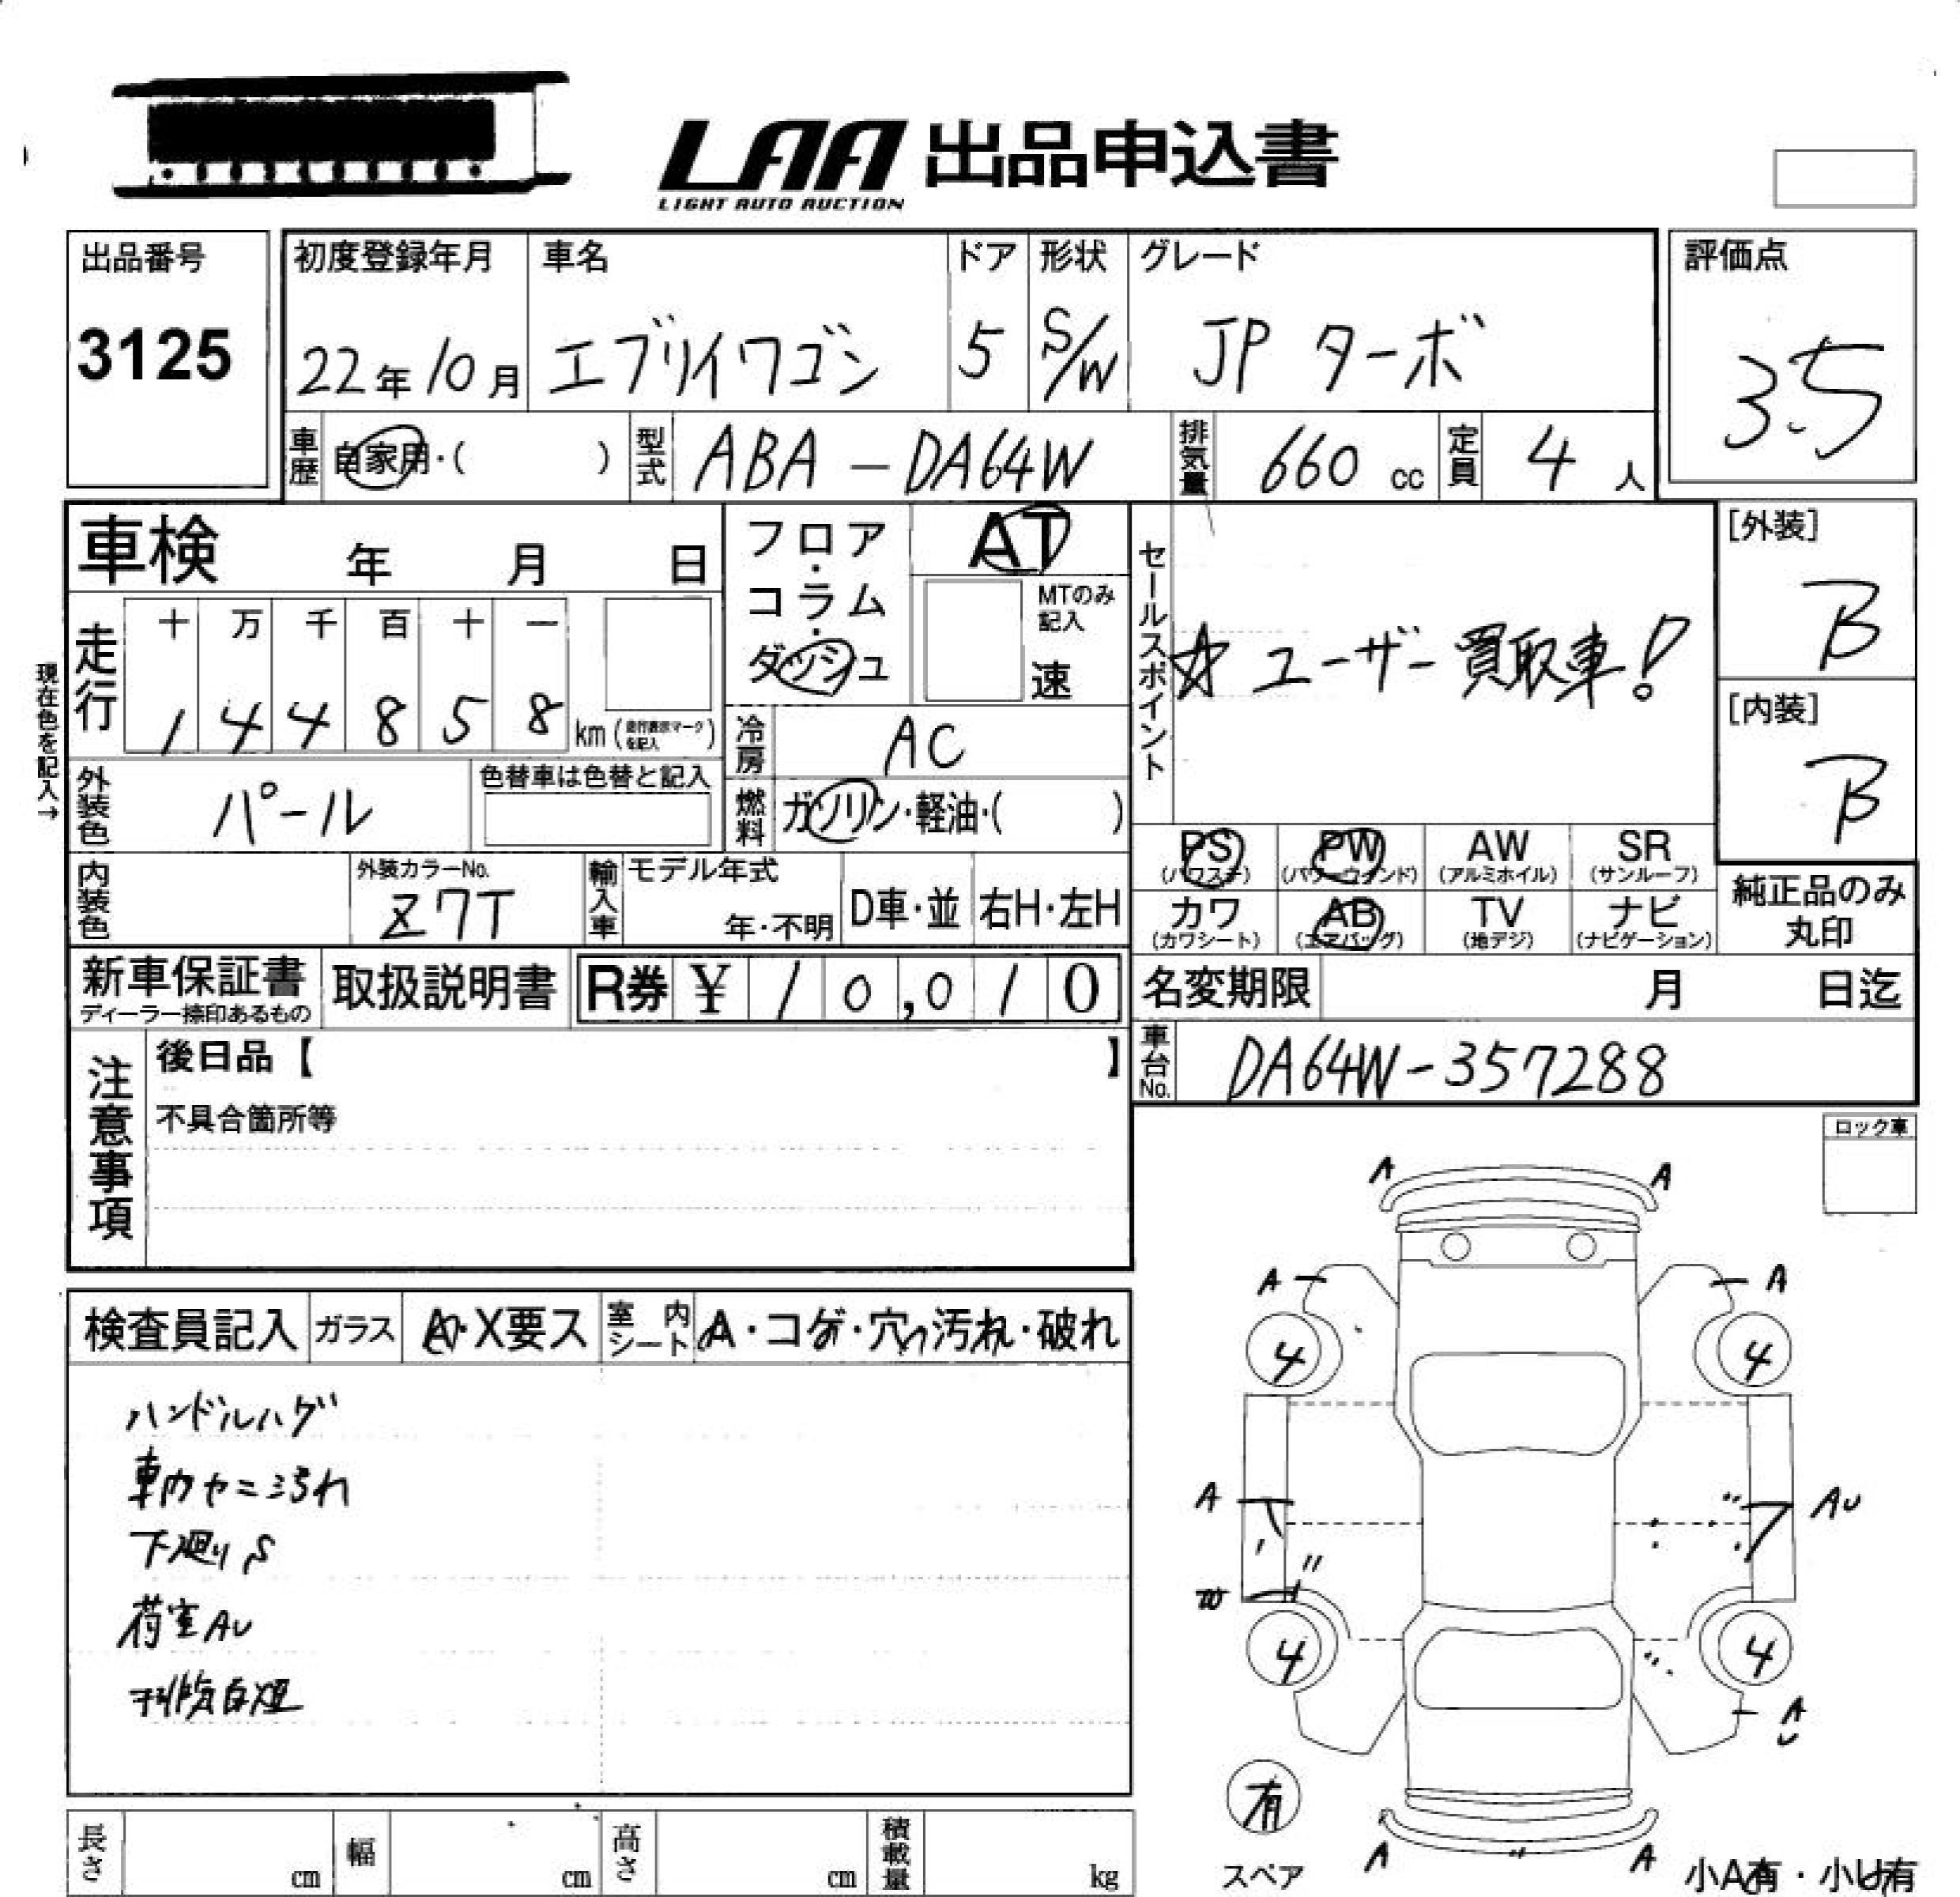 LAA 出品申込書
LIGHT AUTO AUCTION
出品番号
3125
初度登録年月 車名 ドア 形状 グレード
22年10月 エブリイワゴン 5 S/W JP ターボ
評価点
3.5
車歴 自家用・( ) 型式 ABA-DA64W 排気量 660 cc 定員 4 人
車検 年 月 日
フロア・コラム・ダッシュ
AT
MTのみ記入
速
セールスポイント
☆ユーザー買取車!
[外装]
B
[内装]
B
現在色を記入→
走行
十 万 千 百 十 一
1 4 4 8 5 8 km (走行表示マークを記入)
冷房 AC
外装色 パール
色替車は色替と記入
燃料 ガソリン・軽油・( )
PS (パワステ) PW (パワーウインド) AW (アルミホイル) SR (サンルーフ)
カワ (カワシート) AB (エアバッグ) TV (地デジ) ナビ (ナビゲーション)
純正品のみ丸印
内装色
外装カラーNo.
Z7T
輸入車 モデル年式
年・不明 D車・並 右H・左H
新車保証書
ディーラー捺印あるもの
取扱説明書
R券 ¥ 10,010
名変期限 月 日迄
車台No. DA64W-357288
注意事項
後日品【 】
不具合箇所等
ロック車
検査員記入 ガラス A・X要ス 室内シート A・コゲ・穴・汚れ・破れ
ハンドルハゲ
車内ヤニ汚れ
下廻りS
荷室AU
排気白煙
A A
A A
4 4
A AU
W
4 4
A U
有
スペア
A A
小A有・小U有
長さ cm 幅 cm 高さ cm 積載量 kg